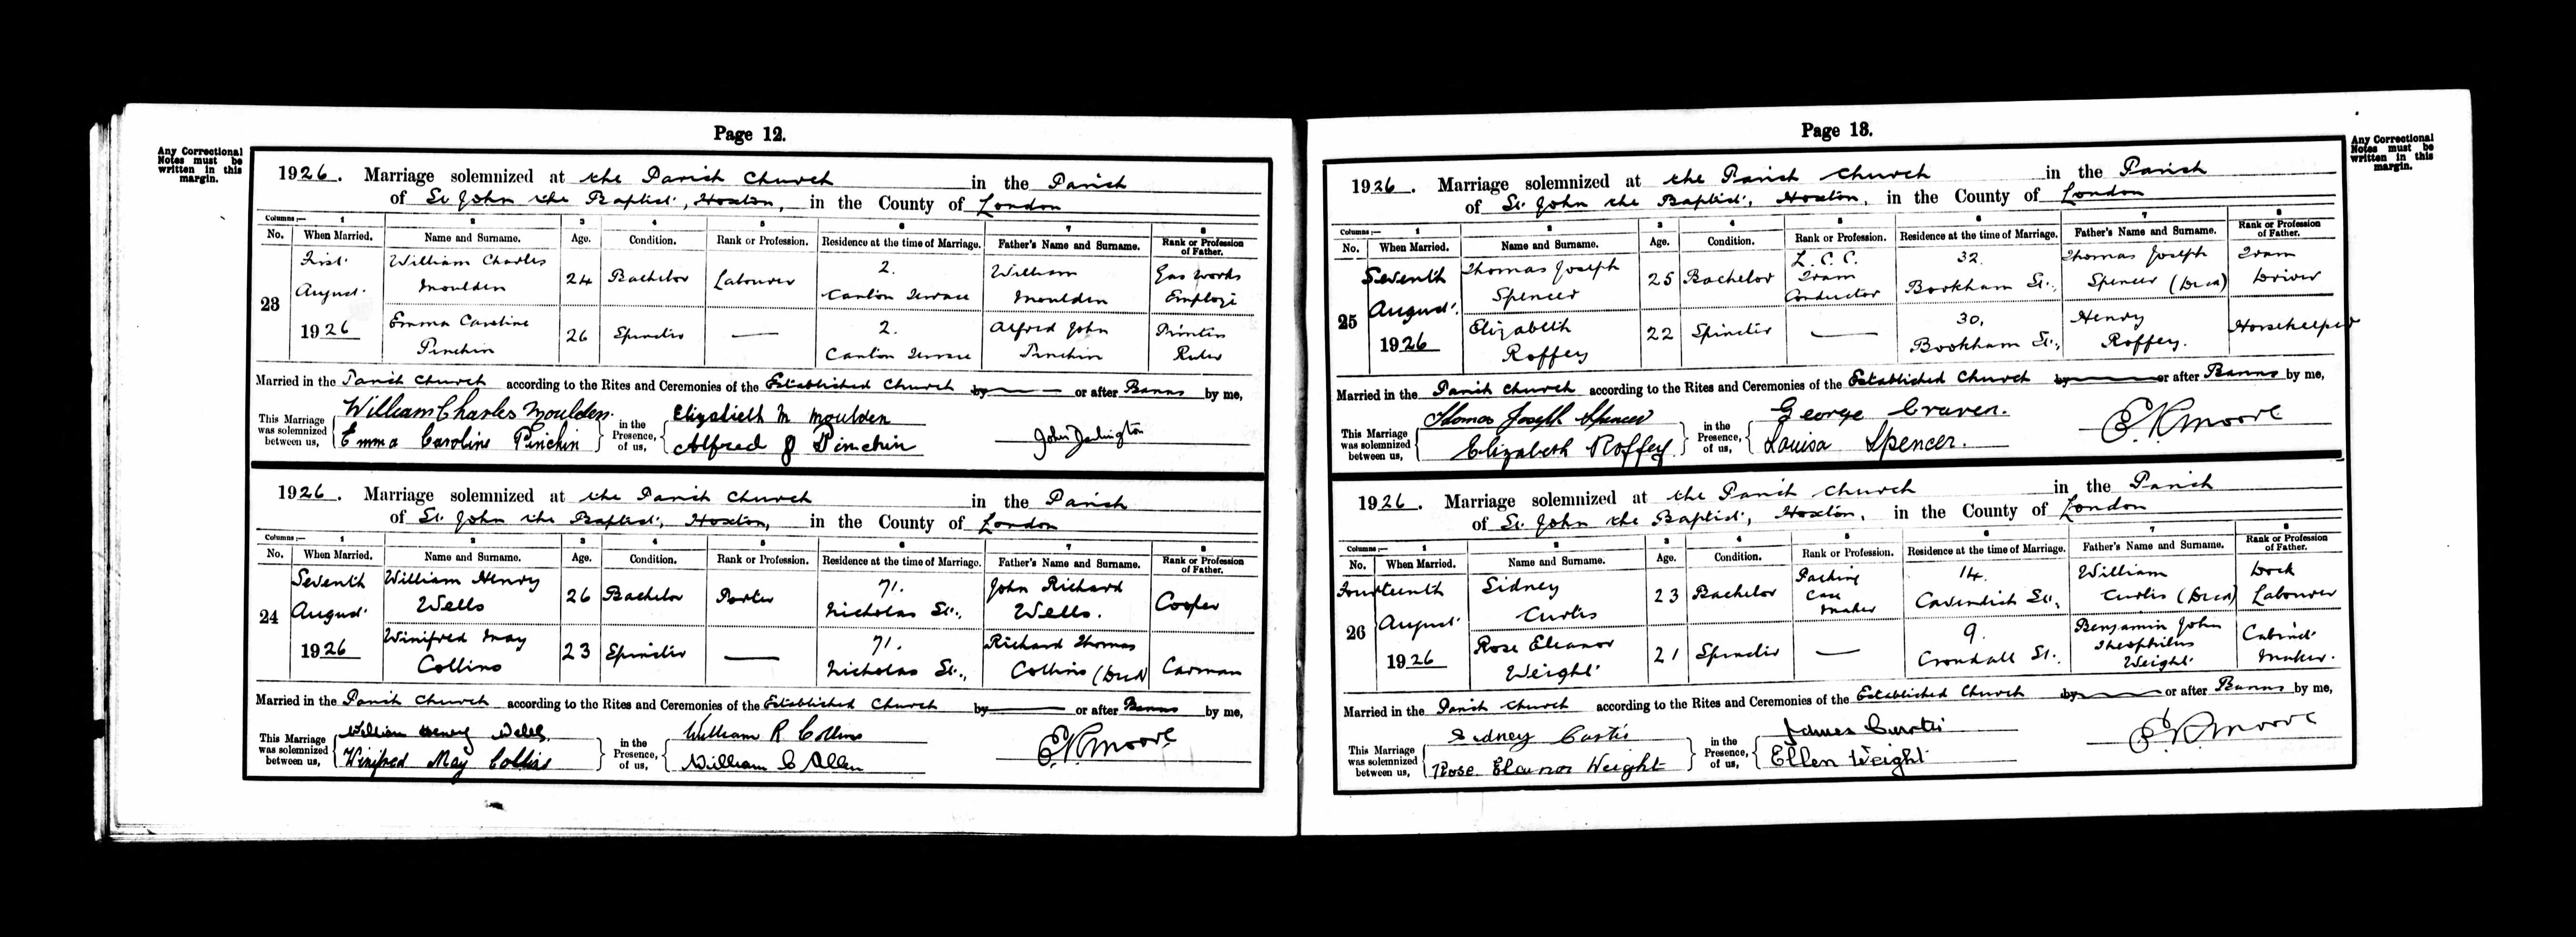 Page 12.
Any Correctional
Notes must be
written in this
margin.
1926. Marriage solemnized at the Parish Church in the Parish
of St John the Baptist, Hoxton, in the County of London
Columns:— 1 2 3 4 5 6 7 8
No. When Married. Name and Surname. Age. Condition. Rank or Profession. Residence at the time of Marriage. Father's Name and Surname. Rank or Profession of Father.
23 First August 1926
William Charles Moulden 24 Bachelor Labourer 2. Canton Terrace William Moulden Gas works Employé
Emma Caroline Pinchin 26 Spinster — 2. Canton Terrace Alfred John Pinchin Printers Ruler
Married in the Parish Church according to the Rites and Ceremonies of the Established Church by — or after Banns by me,
This Marriage was solemnized between us,
William Charles Moulden.
Emma Caroline Pinchin
in the Presence, of us,
Elizabeth M Moulden
Alfred J Pinchin
1926. Marriage solemnized at the Parish Church in the Parish
of St. John the Baptist, Hoxton, in the County of London
Columns:— 1 2 3 4 5 6 7 8
No. When Married. Name and Surname. Age. Condition. Rank or Profession. Residence at the time of Marriage. Father's Name and Surname. Rank or Profession of Father.
24 Seventh August 1926
William Henry Wells 26 Bachelor Porter 71. Nicholas St., John Richard Wells. Cooper
Winifred May Collins 23 Spinster — 71. Nicholas St., Richard Thomas Collins (Decd) Carman
Married in the Parish Church according to the Rites and Ceremonies of the Established Church by — or after Banns by me,
This Marriage was solemnized between us,
William Henry Wells
Winifred May Collins
in the Presence, of us,
William R Collins
William C Allen
E. K. Moore
Page 13.
Any Correctional
Notes must be
written in this
margin.
1926. Marriage solemnized at the Parish Church in the Parish
of St. John the Baptist, Hoxton, in the County of London
Columns:— 1 2 3 4 5 6 7 8
No. When Married. Name and Surname. Age. Condition. Rank or Profession. Residence at the time of Marriage. Father's Name and Surname. Rank or Profession of Father.
25 Seventh August 1926
Thomas Joseph Spencer 25 Bachelor L.C.C. Tram Conductor 32. Bookham St., Thomas Joseph Spencer (Decd) Tram Driver
Elizabeth Roffey 22 Spinster — 30, Bookham St., Henry Roffey. Horsekeeper
Married in the Parish Church according to the Rites and Ceremonies of the Established Church by — or after Banns by me,
This Marriage was solemnized between us,
Thomas Joseph Spencer
Elizabeth Roffey
in the Presence, of us,
George Craven.
Louisa Spencer.
E. K. Moore
1926. Marriage solemnized at the Parish Church in the Parish
of St. John the Baptist, Hoxton, in the County of London
Columns:— 1 2 3 4 5 6 7 8
No. When Married. Name and Surname. Age. Condition. Rank or Profession. Residence at the time of Marriage. Father's Name and Surname. Rank or Profession of Father.
26 Fourteenth August 1926
Sidney Curtis 23 Bachelor Packing Case Maker 14. Cavendish St., William Curtis (Decd) Dock Labourer
Rose Eleanor Weight 21 Spinster — 9. Crondall St., Benjamin John Theophilus Weight Cabinet Maker.
Married in the Parish Church according to the Rites and Ceremonies of the Established Church by — or after Banns by me,
This Marriage was solemnized between us,
Sidney Curtis
Rose Eleanor Weight
in the Presence, of us,
James Curtis
Ellen Weight
E. K. Moore